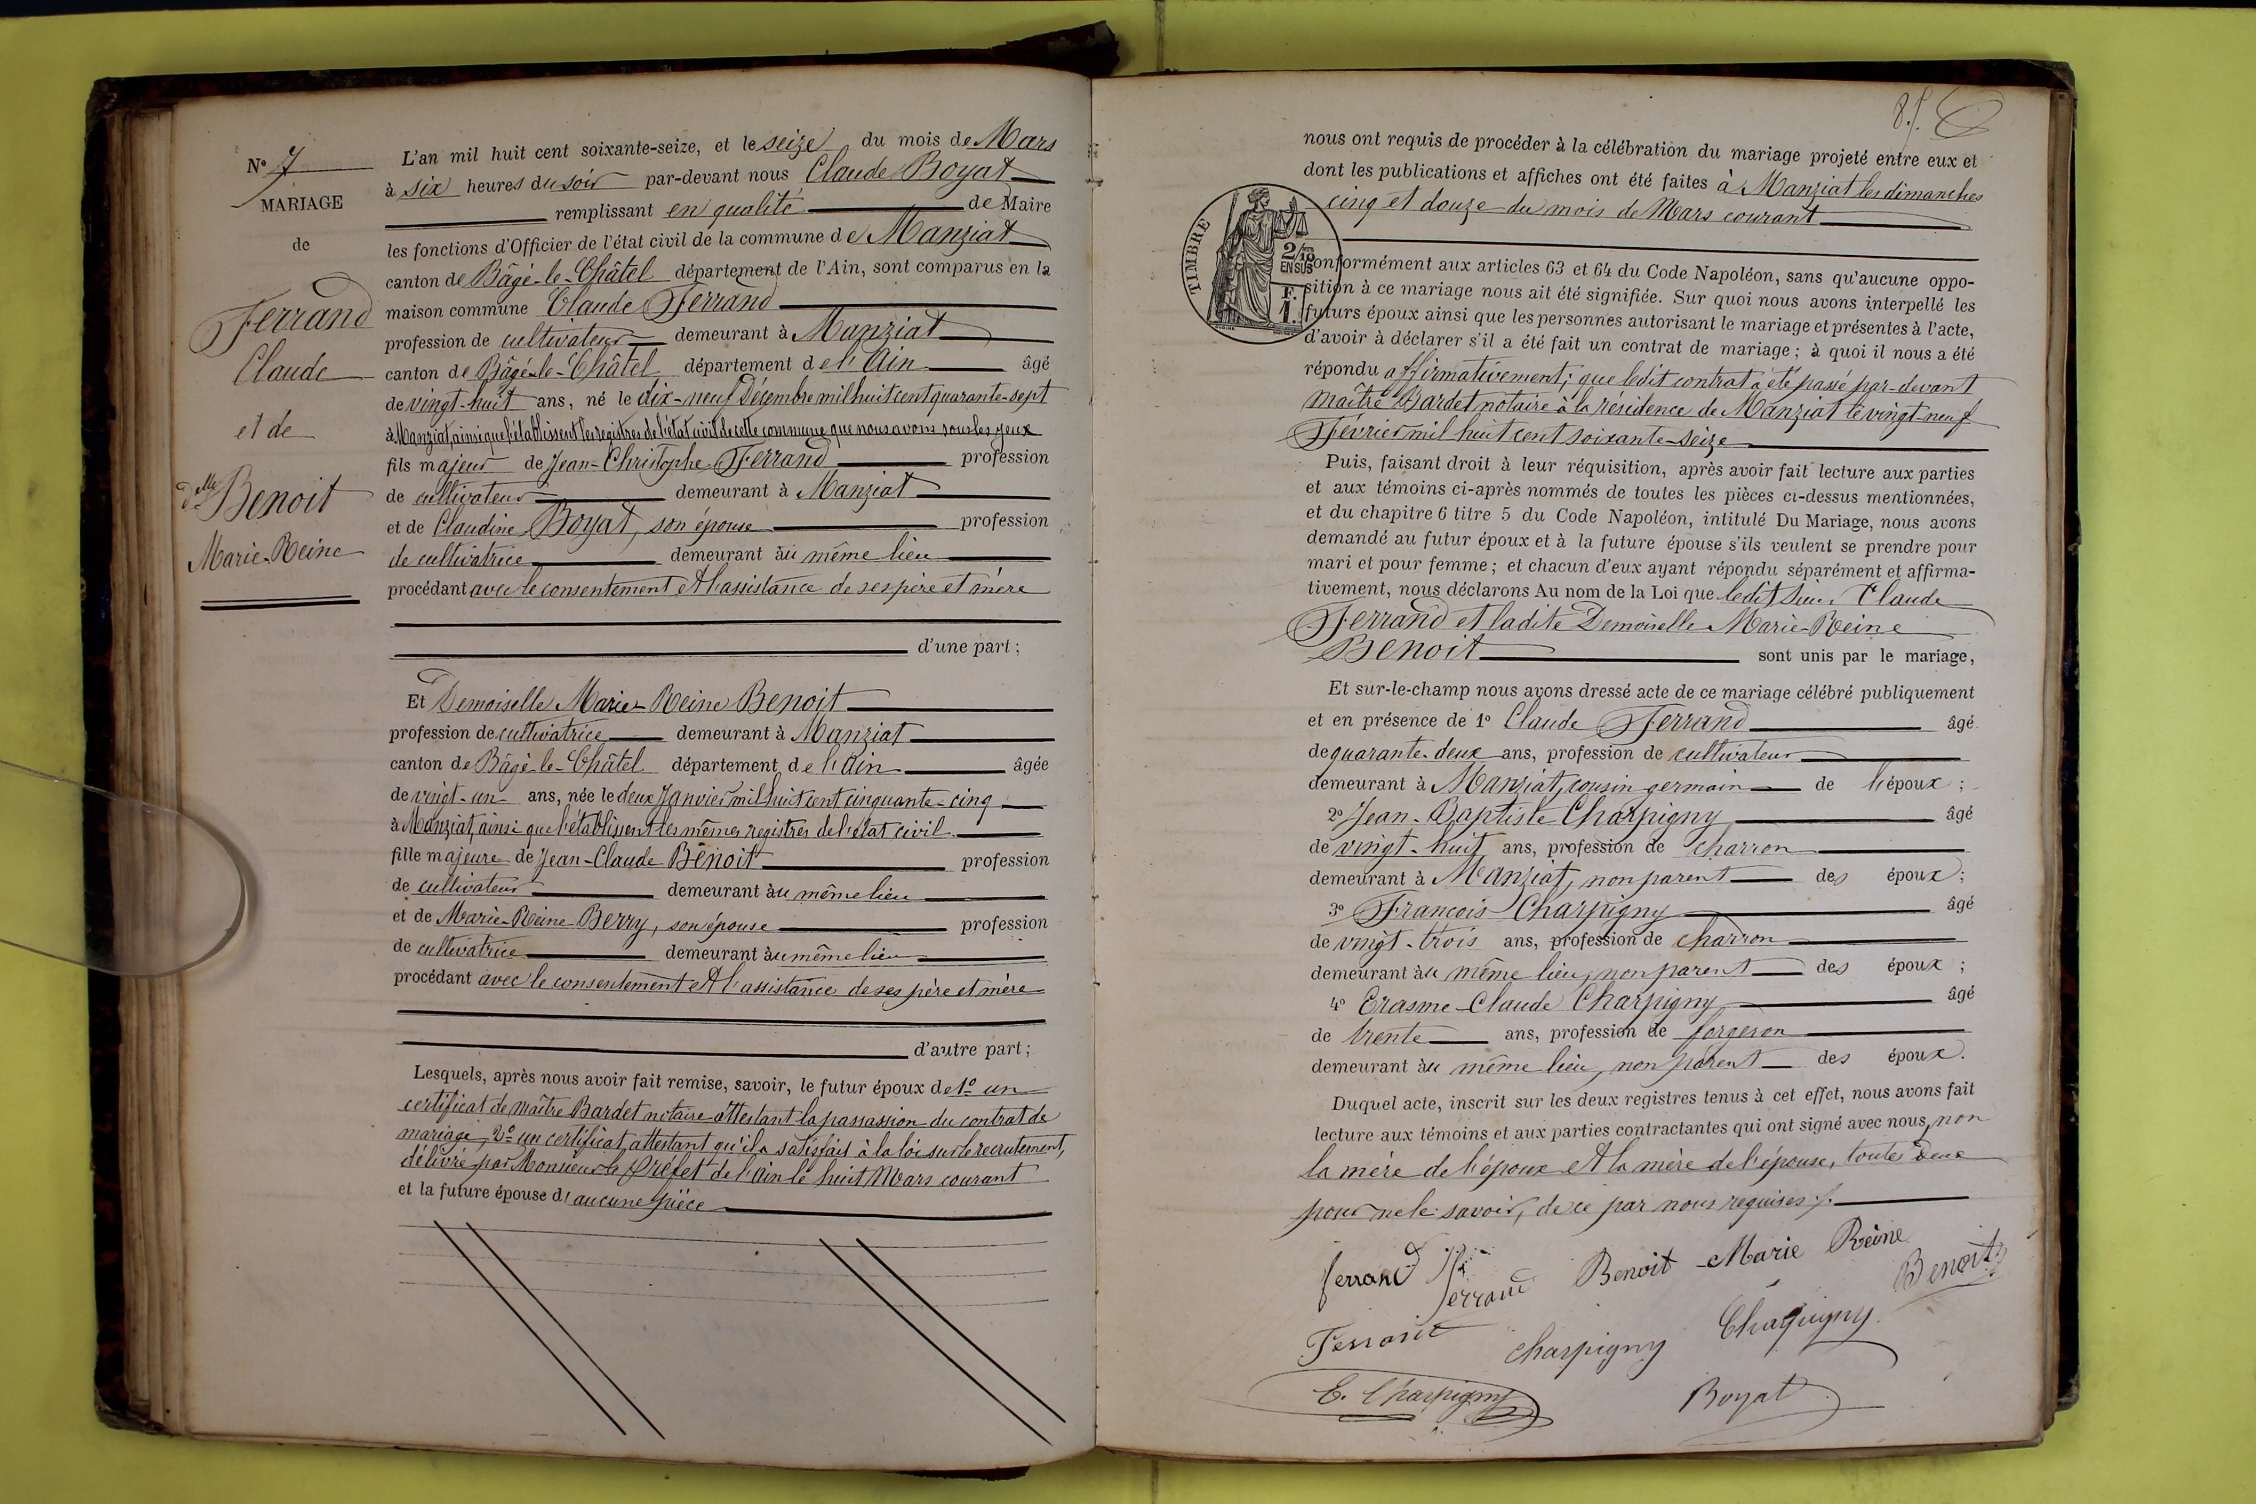 N° 7
MARIAGE
de
Ferrand
Claude
et de
dlle Benoit
Marie-Reine
L'an mil huit cent soixante-seize, et le seize du mois de Mars
à six heures du soir par-devant nous Claude Boyat
remplissant en qualité de Maire
les fonctions d'Officier de l'état civil de la commune de Manziat
canton de Bâgé-le-Châtel département de l'Ain, sont comparus en la
maison commune Claude Ferrand
profession de cultivateur demeurant à Manziat
canton de Bâgé-le-Châtel département de l'Ain âgé
de vingt-huit ans, né le dix-neuf Décembre mil huit cent quarante-sept
à Manziat, ainsi que l'établissent les registres de l'état civil de cette commune que nous avons sous les yeux
fils majeur de Jean-Christophe Ferrand profession
de cultivateur demeurant à Manziat
et de Claudine Boyat, son épouse profession
de cultivatrice demeurant au même lieu
procédant avec le consentement et l'assistance de ses père et mère
d'une part ;
Et Demoiselle Marie-Reine Benoit
profession de cultivatrice demeurant à Manziat
canton de Bâgé-le-Châtel département de l'Ain âgée
de vingt-un ans, née le deux Janvier mil huit cent cinquante-cinq
à Manziat, ainsi que l'établissent les mêmes registres de l'état civil
fille majeure de Jean-Claude Benoit profession
de cultivateur demeurant au même lieu
et de Marie-Reine Berry, son épouse profession
de cultivatrice demeurant au même lieu
procédant avec le consentement et l'assistance de ses père et mère
d'autre part ;
Lesquels, après nous avoir fait remise, savoir, le futur époux de 1° un
certificat de Maître Bardet notaire attestant la passassion du contrat de
mariage, 2° un certificat attestant qu'il a satisfait à la loi sur le recrutement,
délivré par Monsieur le Préfet de l'Ain le huit Mars courant
et la future épouse d'aucune pièce
8. f.
nous ont requis de procéder à la célébration du mariage projeté entre eux et
dont les publications et affiches ont été faites à Manziat les dimanches
cinq et douze du mois de Mars courant
TIMBRE
2/10
EN SUS
F.
1.
conformément aux articles 63 et 64 du Code Napoléon, sans qu'aucune oppo-
sition à ce mariage nous ait été signifiée. Sur quoi nous avons interpellé les
futurs époux ainsi que les personnes autorisant le mariage et présentes à l'acte,
d'avoir à déclarer s'il a été fait un contrat de mariage ; à quoi il nous a été
répondu affirmativement ; que ledit contrat a été passé par-devant
Maître Bardet notaire à la résidence de Manziat le vingt-neuf
Février mil huit cent soixante-seize
Puis, faisant droit à leur réquisition, après avoir fait lecture aux parties
et aux témoins ci-après nommés de toutes les pièces ci-dessus mentionnées,
et du chapitre 6 titre 5 du Code Napoléon, intitulé Du Mariage, nous avons
demandé au futur époux et à la future épouse s'ils veulent se prendre pour
mari et pour femme ; et chacun d'eux ayant répondu séparément et affirma-
tivement, nous déclarons Au nom de la Loi que ledit Sieur Claude
Ferrand et ladite Demoiselle Marie-Reine
Benoit sont unis par le mariage,
Et sur-le-champ nous avons dressé acte de ce mariage célébré publiquement
et en présence de 1° Claude Ferrand âgé
de quarante-deux ans, profession de cultivateur
demeurant à Manziat, cousin germain de l'époux ;
2° Jean-Baptiste Charpigny âgé
de vingt-huit ans, profession de charron
demeurant à Manziat, non parent des époux ;
3° François Charpigny âgé
de vingt-trois ans, profession de charron
demeurant au même lieu, non parent des époux ;
4° Erasme-Claude Charpigny âgé
de trente ans, profession de forgeron
demeurant au même lieu, non parent des époux.
Duquel acte, inscrit sur les deux registres tenus à cet effet, nous avons fait
lecture aux témoins et aux parties contractantes qui ont signé avec nous, non
la mère de l'époux et la mère de l'épouse, toutes deux
pour ne le savoir, de ce par nous requises ./.
ferrand Benoit Marie Reine
ferrand Benoit
Ferrand charpigny Charpigny
E. Charpigny Boyat